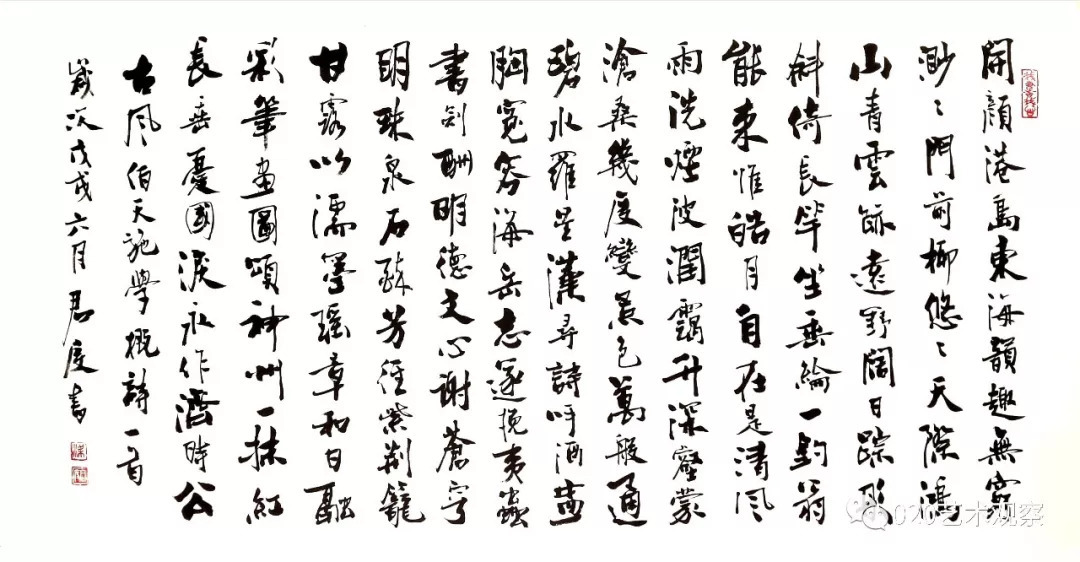 開顏港島東海韻趣無窮
渺〻門前柳悠〻天際鴻
山青雲跡遠野闊日踪彤
斜倚長竿坐垂綸一釣翁
能來惟皓月自在是清風
雨洗煙波潤靄升深壑蒙
滄桑幾度變景色萬般通
碧水羅星漢尋詩呼酒盅
胸寬容海岳志遂挽夷蟲
書劍酬明德文心謝蒼穹
明珠泉石醉芳徑紫荊籠
甘露以濡筆瑤章和日融
彩筆畫圖頌神州一抹紅
長垂憂國淚永作濟時公
古風伯天施學概詩一首
歲次戊戌六月君度書
020艺术观察